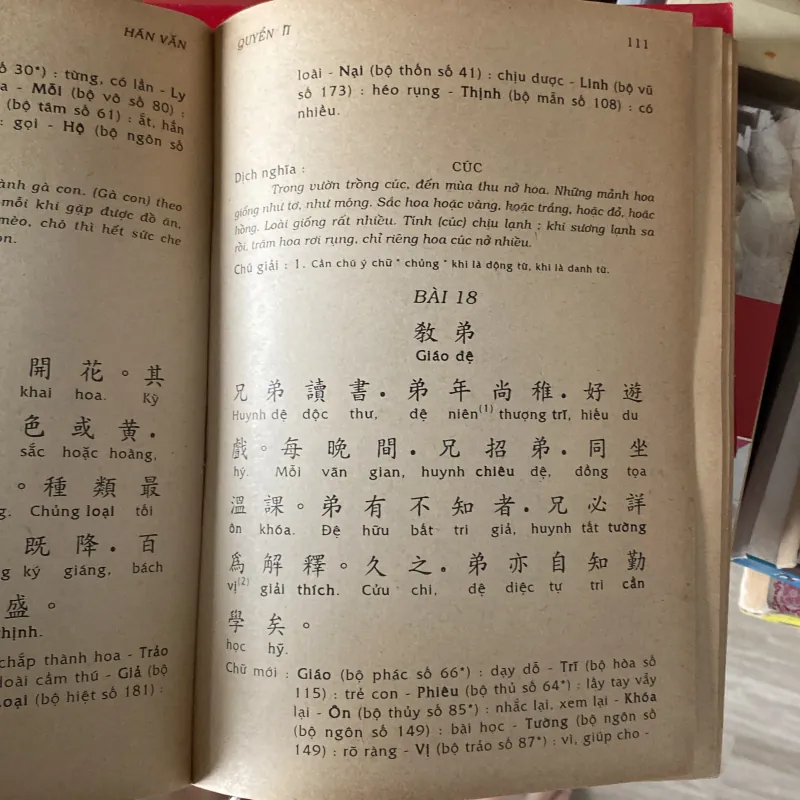 HÁN VĂN
ố 30*) : từng, có lần - Ly
a - Mỗi (bộ vô số 80) :
(bộ tâm số 61) : ắt, hẳn
: gọi - Hộ (bộ ngôn số
ành gà con. (Gà con) theo
mỗi khi gặp được đồ ăn,
mèo, chó thì hết sức che
on.
開 花 。 其
khai hoa. Kỳ
色 或 黄 .
sắc hoặc hoàng,
。 種 類 最
g. Chủng loại tối
既 降 . 百
g ký giáng, bách
盛 。
hịnh.
chắp thành hoa - Trảo
loài cầm thú - Giả (bộ
oại (bộ hiệt số 181) :
QUYỂN II
111
loài - Nại (bộ thốn số 41) : chịu được - Linh (bộ vũ
số 173) : héo rụng - Thịnh (bộ mẫn số 108) : có
nhiều.
Dịch nghĩa :
CÚC
Trong vườn trồng cúc, đến mùa thu nở hoa. Những mảnh hoa
giống như tơ, như móng. Sắc hoa hoặc vàng, hoặc trắng, hoặc đỏ, hoặc
hồng. Loài giống rất nhiều. Tính (cúc) chịu lạnh : khi sương lạnh sa
rồi, trăm hoa rơi rụng, chỉ riêng hoa cúc nở nhiều.
Chú giải : 1. Cần chú ý chữ " chủng " khi là động từ, khi là danh từ.
BÀI 18
教 弟
Giáo đệ
兄 弟 讀 書 . 弟 年 尚 稚 . 好 遊
Huynh đệ độc thư, đệ niên(1) thượng trĩ, hiếu du
戲 。 每 晚 間 . 兄 招 弟 . 同 坐
hý. Mỗi vãn gian, huynh chiêu đệ, đồng tọa
溫 課 。 弟 有 不 知 者 . 兄 必 詳
ôn khóa. Đệ hữu bất tri giả, huynh tất tường
爲 解 釋 。 久 之 . 弟 亦 自 知 勤
vị(2) giải thích. Cửu chi, đệ diệc tự tri cần
學 矣 。
học hỹ.
Chữ mới : Giáo (bộ phác số 66*) : dạy dỗ - Trĩ (bộ hòa số
115) : trẻ con - Phiêu (bộ thủ số 64*) : lấy tay vẫy
lại - Ôn (bộ thủy số 85*) : nhắc lại, xem lại - Khóa
(bộ ngôn số 149) : bài học - Tường (bộ ngôn số
149) : rõ ràng - Vị (bộ trảo số 87*) : vì, giúp cho -